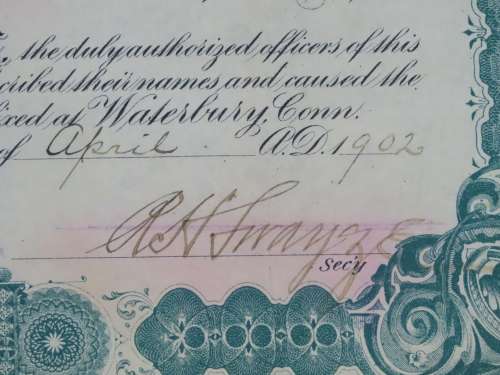 , the duly authorized officers of this
cribed their names and caused the
ixed at Waterbury, Conn.
of April A.D. 1902
R H Swayze
sec'y